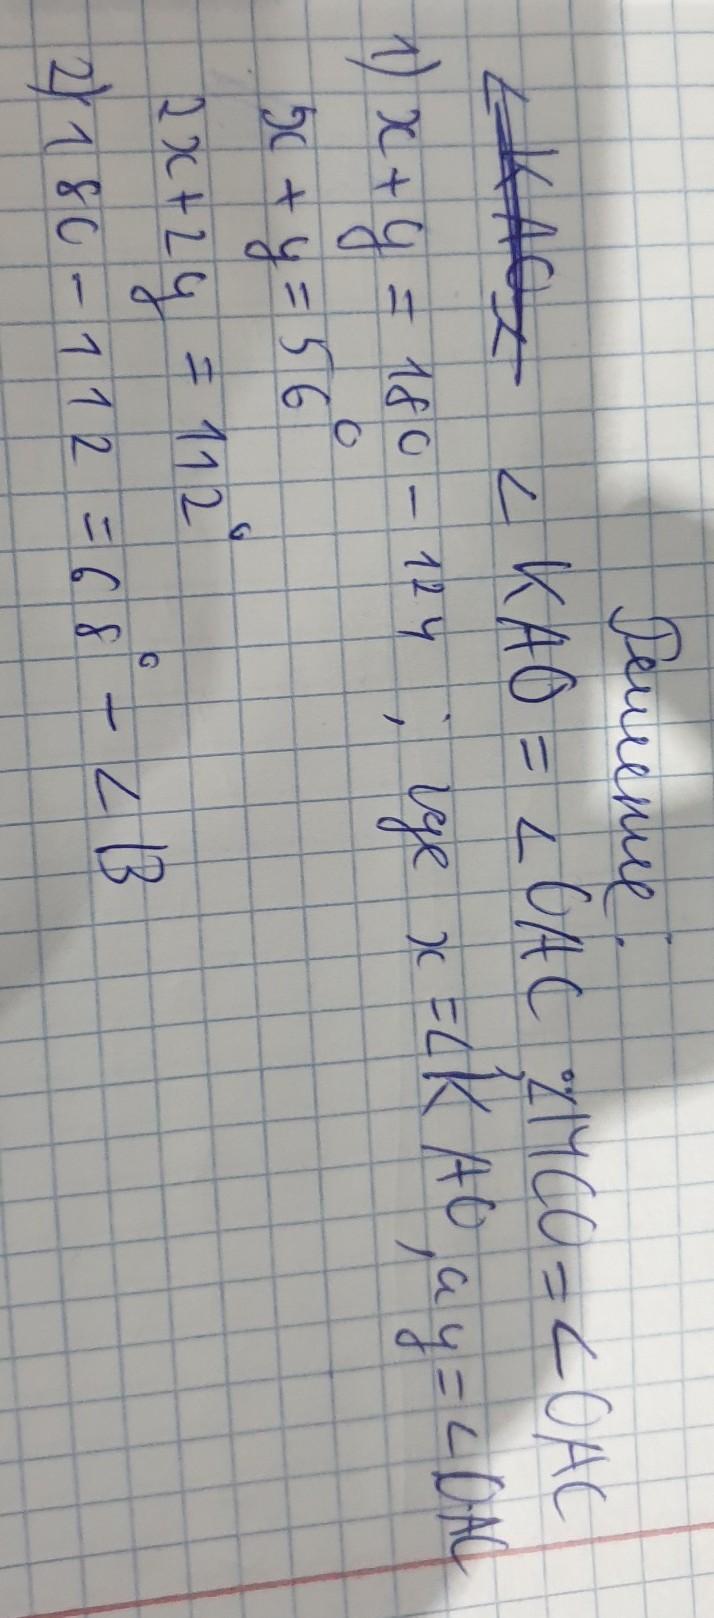 Решение:
∠KAO = ∠OAC ; ∠MCO = ∠OAC
1) x + y = 180 - 124 ; где x = ∠KAO, а y = ∠OAC
x + y = 56°
2x + 2y = 112°
2) 180 - 112 = 68° - ∠B